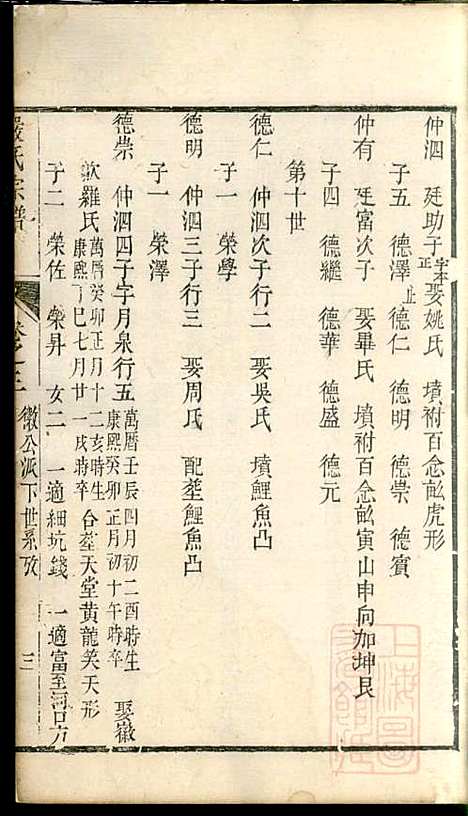 仲泗 廷助子字本正 娶姚氏 墳祔百念畝虎形
子五 德澤止 德仁 德明 德崇 德賓
仲有 廷富次子 娶畢氏 墳祔百念畝寅山申向加坤艮
子四 德繼 德華 德盛 德元
第十世
德仁 仲泗次子行二 娶吳氏 墳鯉魚凸
子一 榮學
德明 仲泗三子行三 娶周氏 配塟鯉魚凸
子一 榮澤
德崇 仲泗四子字月泉行五 萬曆壬辰四月初二酉時生 康熙癸卯正月初十午時卒 娶徽
歙羅氏 萬曆癸卯正月十二亥時生 康熙丁巳七月廿一戌時卒 合塟天堂黄龍笑天形
子二 榮佐 榮昇 女二 一適細坑錢 一適富至河口方
嚴氏宗譜 卷之三 徵公派下世系攷 三
上海圖書館藏